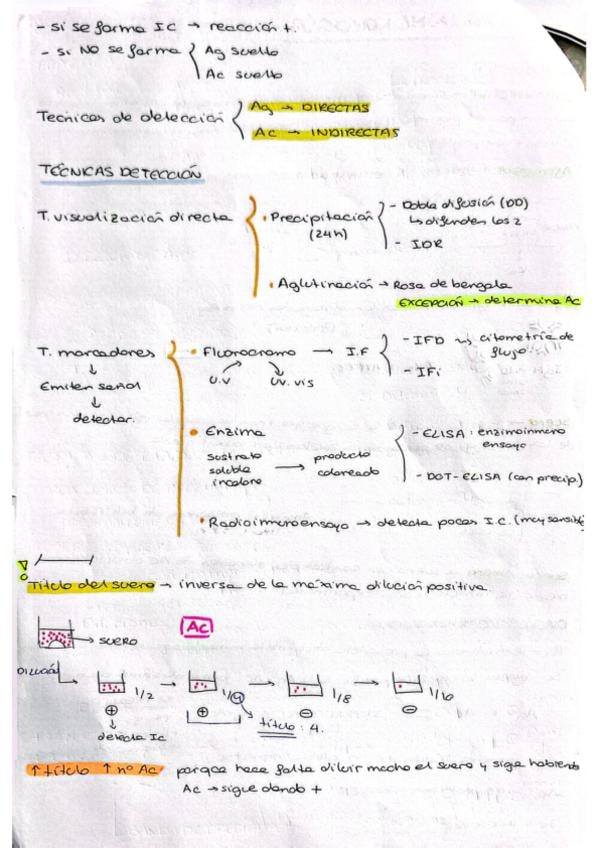 - si se forma IC → reacción +.
- si NO se forma { Ag suelto
Ac suelto
Técnicas de detección { Ag → DIRECTAS
Ac → INDIRECTAS
TÉCNICAS DETECCIÓN
T. visualización directa
• Precipitación (24h)
- Doble difusión (DD)
↳ difunden los 2
- IDR
• Aglutinación → Rosa de bengala
EXCEPCIÓN → determina Ac
T. marcadores
↓
Emiten señal
↓
detectar.
• Fluorocromo → I.F
U.V
UV. vis
- IFD ↝ citometría de flujo.
- IFi
• Enzima
sustrato soluble incoloro → producto coloreado
- ELISA: enzimoinmuno ensayo
- DOT-ELISA (con precip.)
• Radioinmunoensayo → detecta pocas I.C. (muy sensible
Título del suero → inversa de la máxima dilución positiva.
Ac
→ SUERO
Dilución
1/2 → 1/4 → 1/8 → 1/16
⊕ ⊕ ⊖ ⊖
↓
detecta Ic
título: 4.
↑ título ↑ nº Ac porque hace falta diluir mucho el suero y sigue habiendo
Ac → sigue dando +